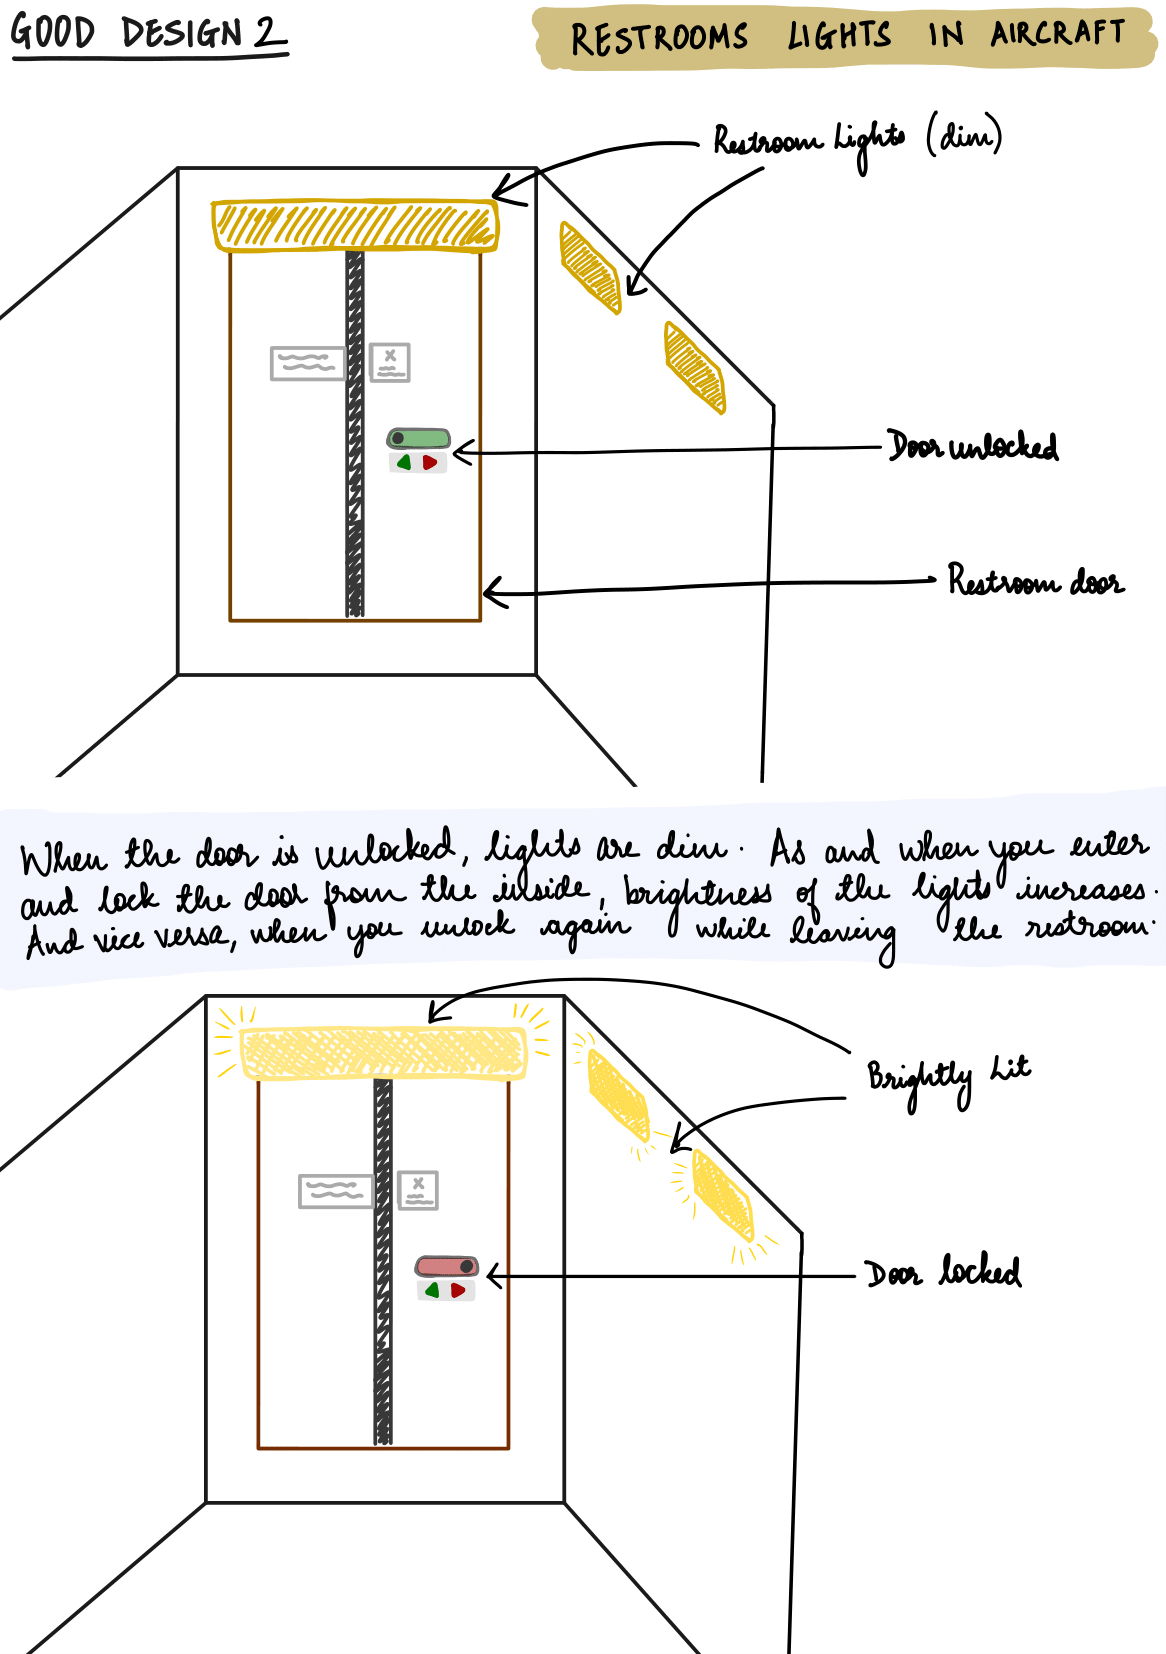 GOOD DESIGN 2
RESTROOMS LIGHTS IN AIRCRAFT
Restroom Lights (dim)
Door unlocked
Restroom door
When the door is unlocked, lights are dim. As and when you enter
and lock the door from the inside, brightness of the lights increases.
And vice versa, when you unlock again while leaving the restroom.
Brightly Lit
Door locked